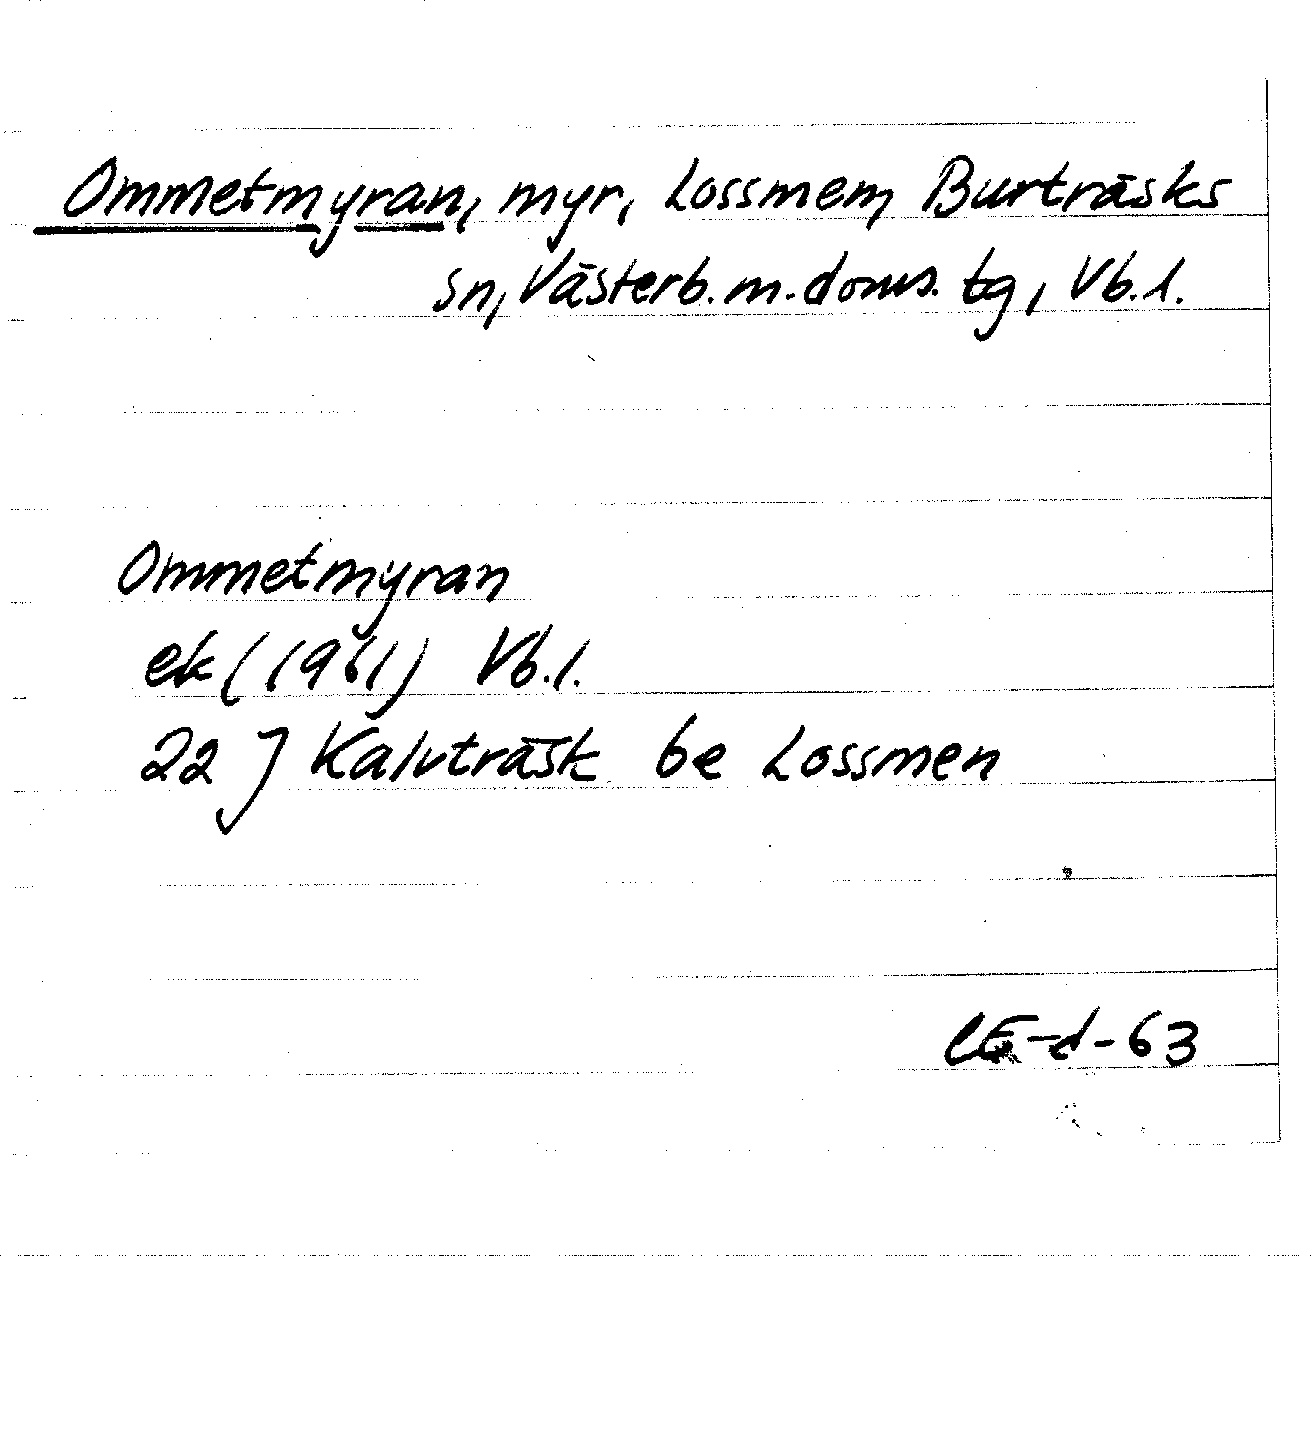 Ommetmyran, myr, Lossmen, Burträsks
sn, Västerb. m. doms. tg, Vb. l.
Ommetmyran
ek (1961) Vb. l.
22 J Kalvträsk be Lossmen
CE-d-63